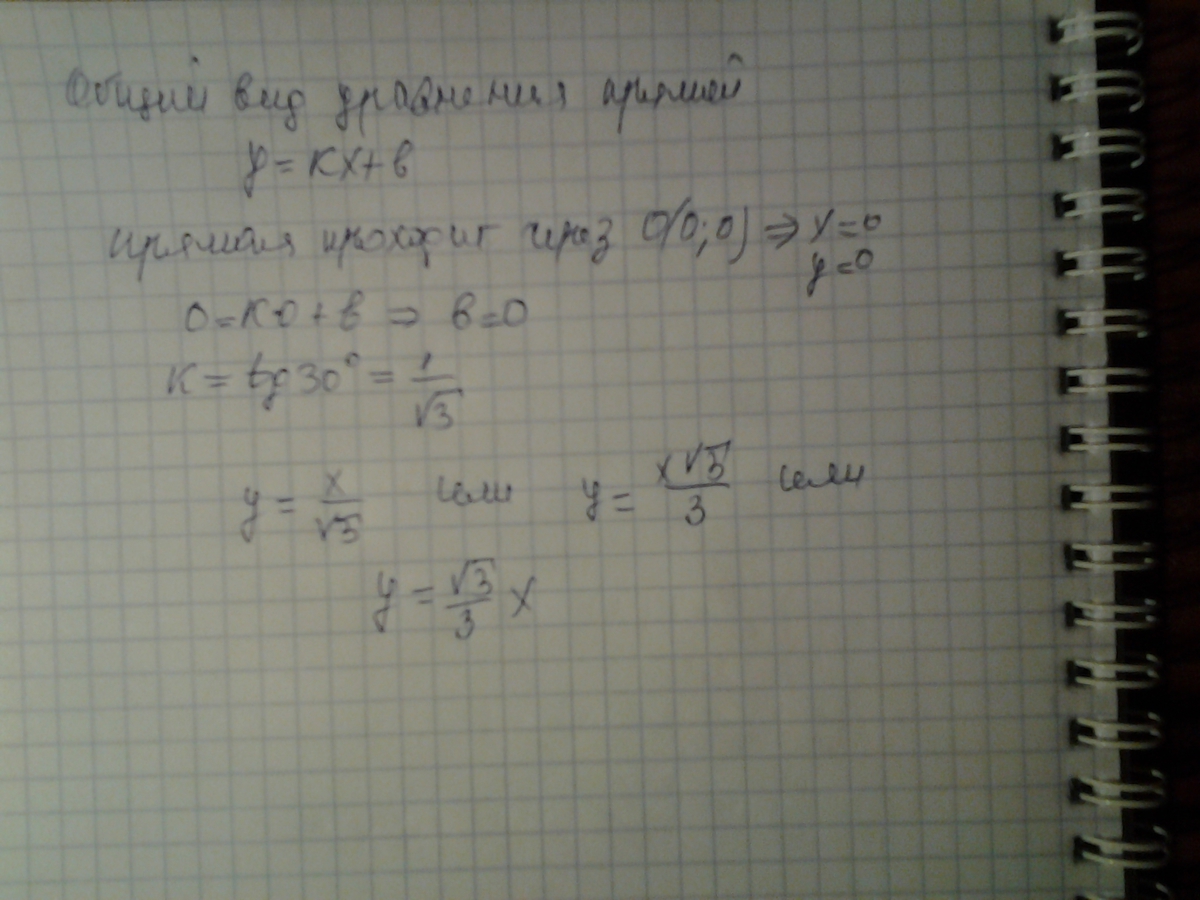 Общий вид уравнения прямой
y = kx + b
прямая проходит через O(0; 0) ⇒ x = 0
y = 0
0 = k0 + b ⇒ b = 0
k = tg 30° = 1/√3
y = x/√3 или y = x√3/3 или
y = √3/3 x